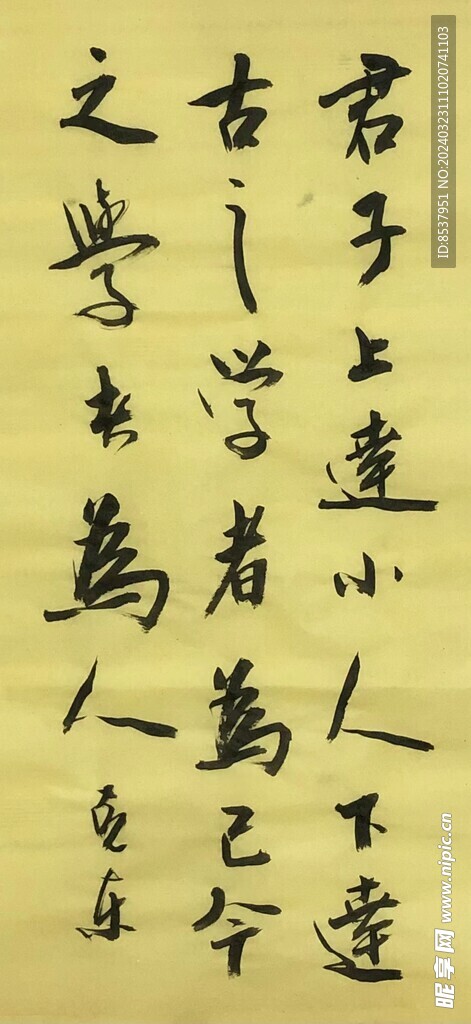 君子上達小人下達
古之学者為己今
之學者為人克东
ID:8537951 NO:20240323111020741103
昵享网 www.nipic.cn